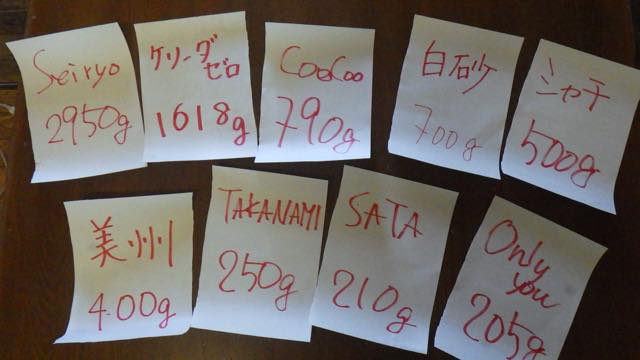 Seiryo
2950g
ケリーダ
ゼロ
1618g
CooCoo
790g
白砂ケ
700g
シャチ
500g
美州
400g
TAKANAMI
250g
SATA
210g
Only
you
205g